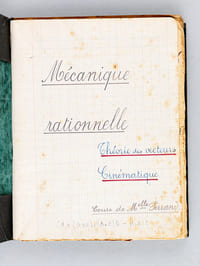 Mécanique
rationnelle
Théorie des vecteurs
Cinématique
Cours de Melle